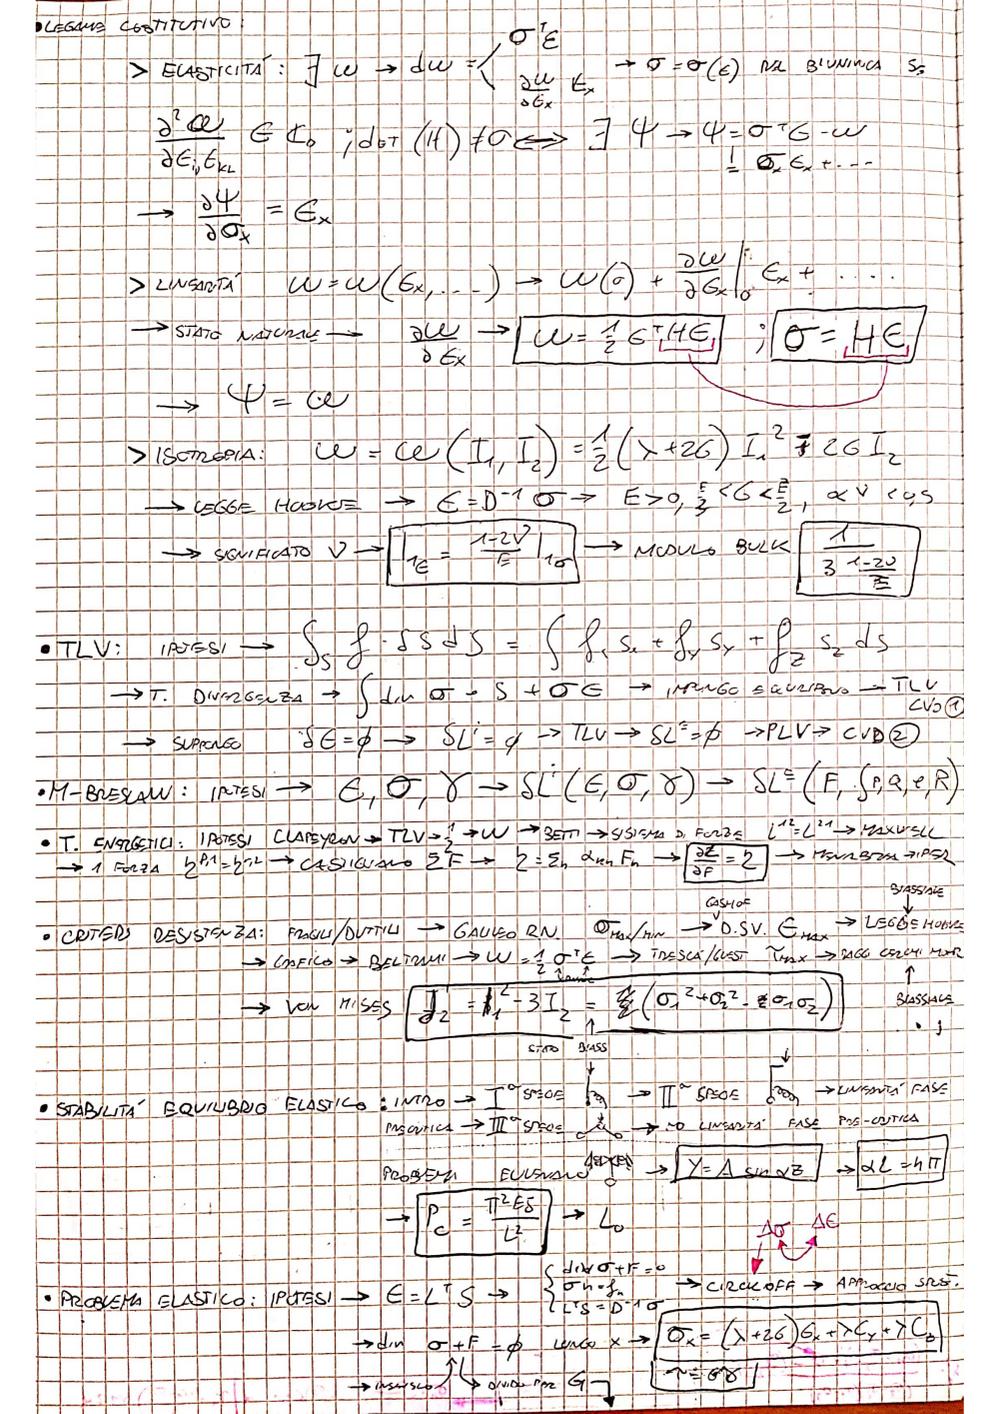 • LEGAME COSTITUTIVO:
> ELASTICITÁ: ∃ ω → dω = < σᵀε ; ∂ω/∂εx εx → σ = σ(ε) BIUNIVOCA SE
∂²ω/∂εij εKL ∈ C₀ ; det (H) ≠ 0 ⟺ ∃ Ψ → Ψ = σᵀε - ω
σx εx + ....
→ ∂Ψ/∂σx = εx
> LINEARITÁ ω = ω(εx, ....) → ω(0) + ∂ω/∂εx |₀ εx + .....
→ STATO NATURALE → ∂ω/∂εx → ω = 1/2 εᵀHε ; σ = Hε
→ Ψ = ω
> ISOTROPIA: ω = ω(I₁, I₂) = 1/2 (λ+2G) I₁² - 2G I₂
→ LEGGE HOOKE → ε = D⁻¹ σ → E>0, E/3 < G < E/2,
→ SIGNIFICATO ν → I₁ε = 1-2ν/E I₁σ → MODULO BULK 1/(3 1-2ν/E)
• TLV: IPOTESI → ∫s f · δs ds = ∫ fx sx + fy sy + fz sz ds
→ T. DIVERGENZA → ∫ div σ · s + σ ε → IMPONGO EQUILIBRIO → TLV
CVD ①
→ SUPPONGO δε = ϕ → δLⁱ = ϕ → TLV → δLᵉ = ϕ → PLV → CVD ②
• M-BRESLAU: IPOTESI → ε, σ, γ → δLⁱ (ε, σ, γ) → δLᵉ (F, ∫p, q, e, R)
• T. ENERGETICI: IPOTESI CLAPEYRON → TLV → 1/2 → ω → BETTI → SISTEMA DI FORZE L¹² = L²¹ → MAXWELL
→ 1 FORZA → CASTIGLIANO ΣF → η = Σn αkn Fn → ∂L/∂F = η → MENABREA → IPER
BIASSIALE
• CRITERI RESISTENZA: FRAGILI/DUTTILI → GALILEO RN. σMAX/MIN → D.S.V. εMAX → LEGGE HOOKE
→ GRAFICO → BELTRAMI → ω = 1/2 σᵀε → TRESCA/GUEST τMAX → RAGG CERCHI MOHR
→ VON MISES J₂ = I₁² - 3I₂ = (σ₁² + σ₂² - σ₁σ₂)
BIASSIALE
STATO BIASS
• STABILITÁ EQUILIBRIO ELASTICO: INTRO → Iª SPECIE → IIª SPECIE → LINEARITÁ FASE
PRECRITICA → IIIª SPECIE → NO LINEARITÁ FASE PRE-CRITICA
PROBLEMA EULERIANO → Y = A sin αz → αL = nπ
→ Pc = π²EJ/L² → L₀
Δσ Δε
• PROBLEMA ELASTICO: IPOTESI → ε = LᵀS → { div σ + F = 0 ; σn = fn ; LᵀS = D⁻¹ σ → CIRCKOFF → APPROCCIO SPOST.
→ div σ + F = ϕ LUNGO X → σx = (λ+2G)εx + λεy + λεz
τ = Gγ
→ INSERISCO → DIVIDO PER G